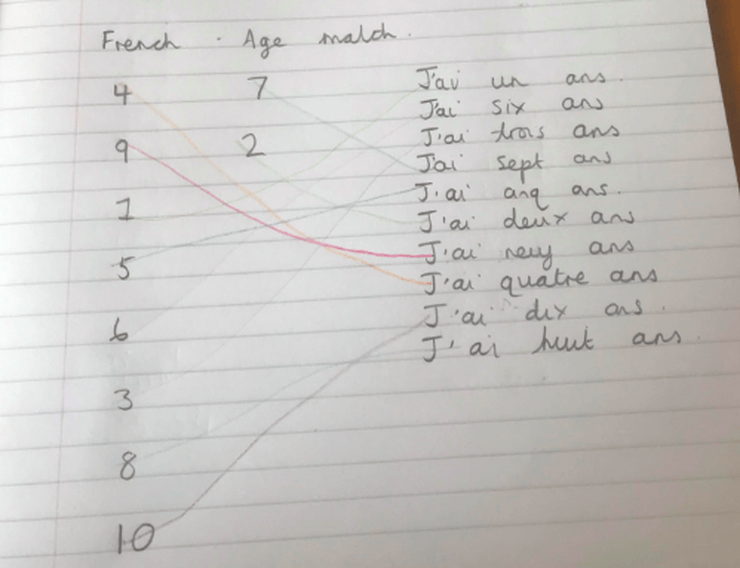 French . Age match.
4 7
9 2
1
5
6
3
8
10
J'ai un ans.
J'ai six ans
J'ai trois ans
J'ai sept ans
J'ai cinq ans.
J'ai deux ans
J'ai neuf ans
J'ai quatre ans
J'ai dix ans.
J'ai huit ans